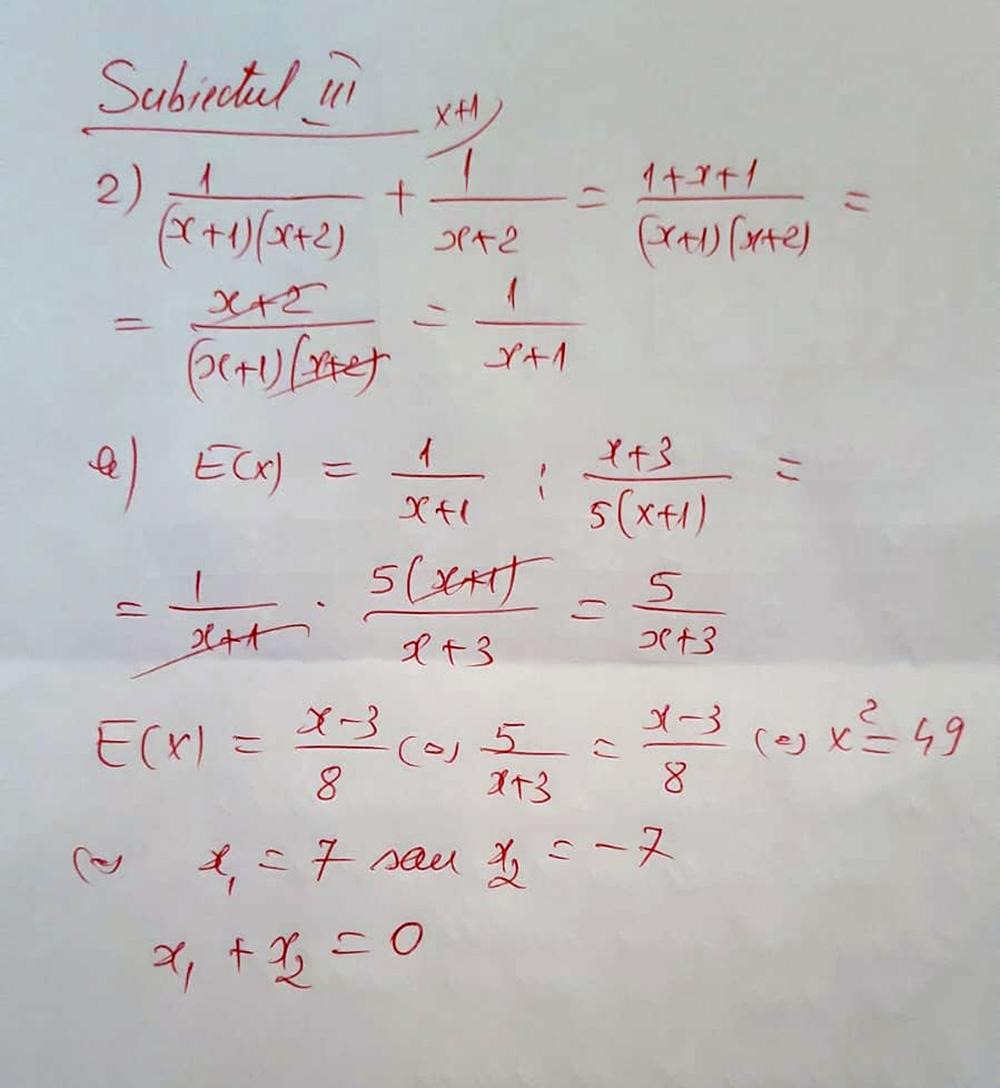 Subiectul III
2) 1/((x+1)(x+2)) + x+1) 1/(x+2) = (1+x+1)/((x+1)(x+2)) =
= (x+2)/((x+1)(x+2)) = 1/(x+1)
b) E(x) = 1/(x+1) : (x+3)/(5(x+1)) =
= 1/(x+1) · 5(x+1)/(x+3) = 5/(x+3)
E(x) = (x-3)/8 (=) 5/(x+3) = (x-3)/8 (=) x² = 49
(=) x₁ = 7 sau x₂ = -7
x₁ + x₂ = 0